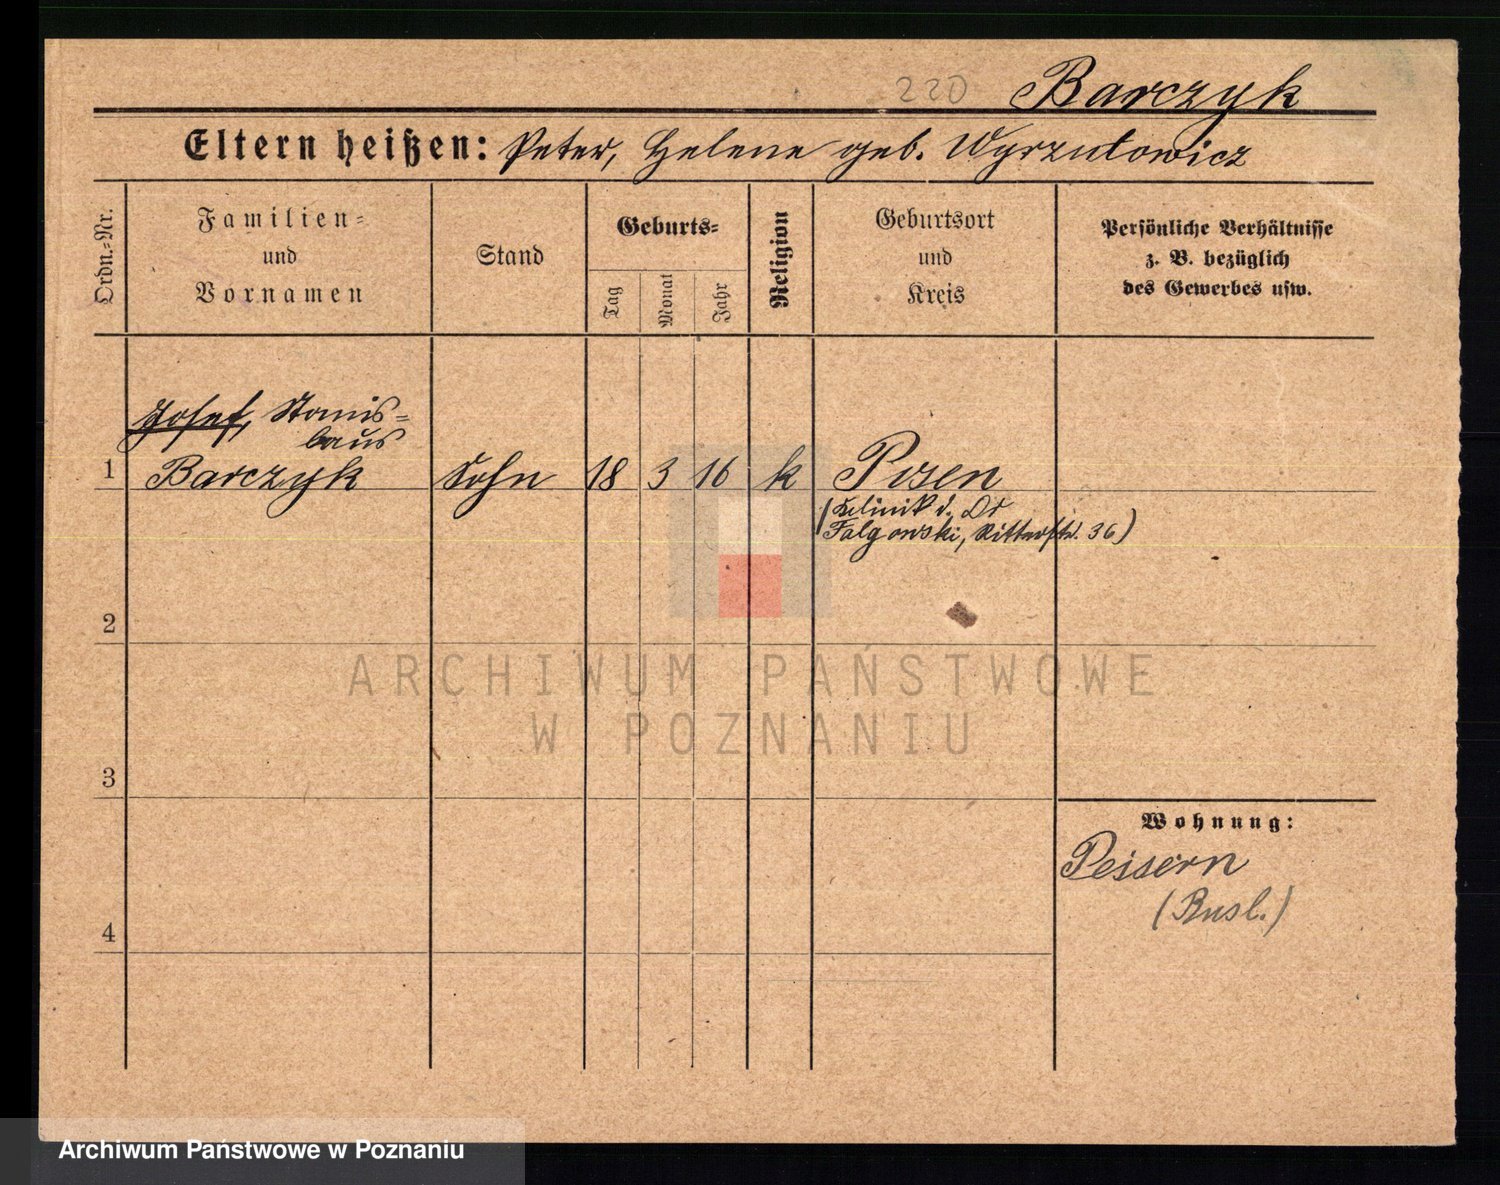 220 Barczyk
Eltern heißen: Peter, Helene geb. Wyrzutowicz
Ordn.=Nr.
Familien=
und
Vornamen
Stand
Geburts=
Tag
Monat
Jahr
Religion
Geburtsort
und
Kreis
Persönliche Verhältnisse
z. B. bezüglich
des Gewerbes usw.
Josef, Stanis=
laus
1 Barczyk Sohn 18 3 16 k Posen
(Klinik d. Dr
Falgowski, Ritterstr. 36)
2
ARCHIWUM PAŃSTWOWE
W POZNANIU
3
Wohnung:
Peisern
(Rusl.)
4
Archiwum Państwowe w Poznaniu